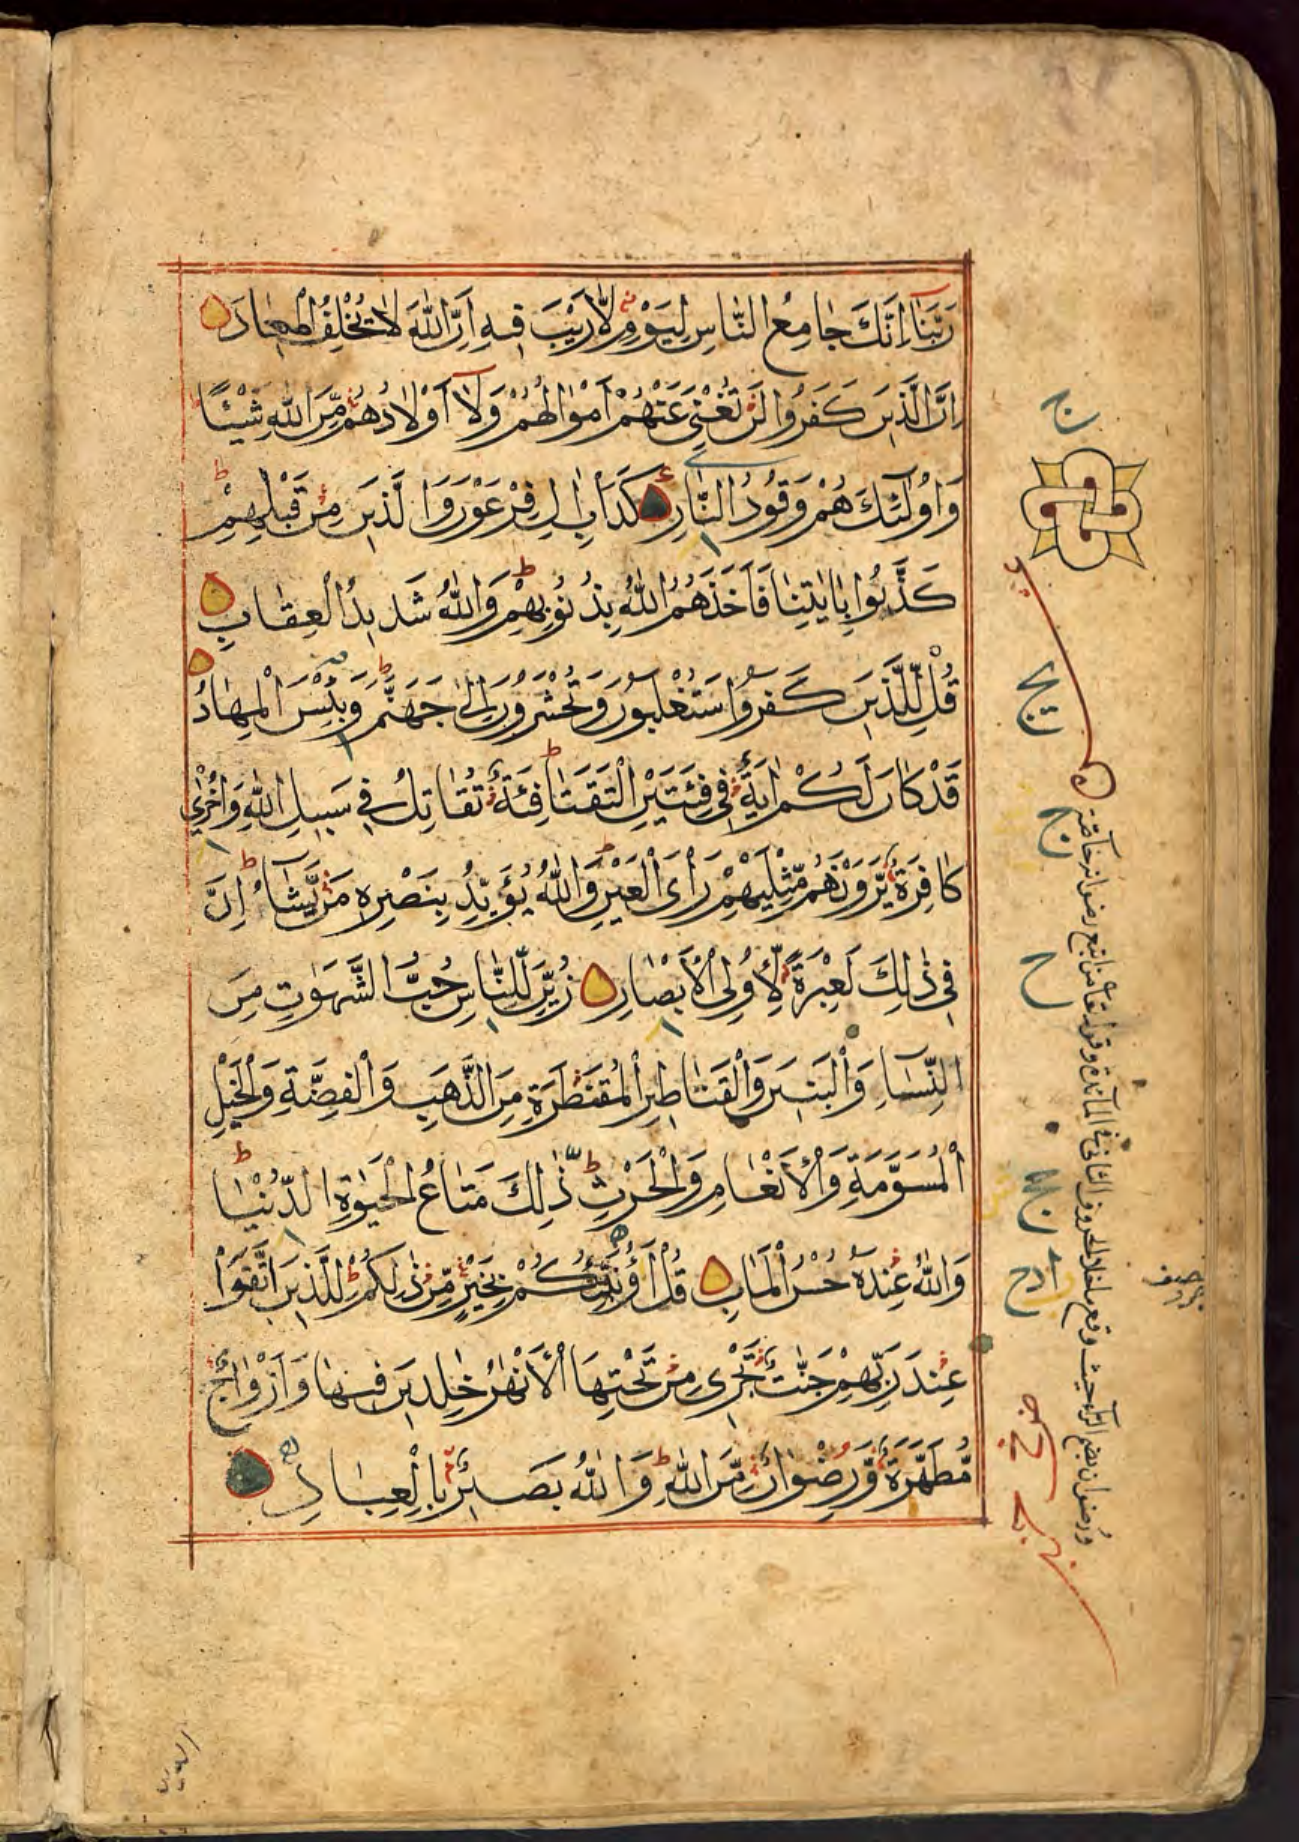 رَبَّنَآ اِنَّكَ جَامِعُ النَّاسِ لِيَوْمٍ لَّا رَيْبَ فِيهِ اِنَّ اللّٰهَ لَا يُخْلِفُ الْمِيعَادَ
اِنَّ الَّذِينَ كَفَرُوا لَنْ تُغْنِيَ عَنْهُمْ اَمْوَالُهُمْ وَلَآ اَوْلَادُهُمْ مِّنَ اللّٰهِ شَيْئًا
وَاُولٰٓئِكَ هُمْ وَقُودُ النَّارِ كَدَاْبِ اٰلِ فِرْعَوْنَ وَالَّذِينَ مِنْ قَبْلِهِمْ
كَذَّبُوا بِاٰيٰتِنَا فَاَخَذَهُمُ اللّٰهُ بِذُنُوبِهِمْ وَاللّٰهُ شَدِيدُ الْعِقَابِ
قُلْ لِّلَّذِينَ كَفَرُوا سَتُغْلَبُونَ وَتُحْشَرُونَ اِلٰى جَهَنَّمَ وَبِئْسَ الْمِهَادُ
قَدْ كَانَ لَكُمْ اٰيَةٌ فِي فِئَتَيْنِ الْتَقَتَا فِئَةٌ تُقَاتِلُ فِي سَبِيلِ اللّٰهِ وَاُخْرٰى
كَافِرَةٌ يَّرَوْنَهُمْ مِّثْلَيْهِمْ رَاْيَ الْعَيْنِ وَاللّٰهُ يُؤَيِّدُ بِنَصْرِهِ مَنْ يَّشَآءُ اِنَّ
فِي ذٰلِكَ لَعِبْرَةً لِّاُولِي الْاَبْصَارِ زُيِّنَ لِلنَّاسِ حُبُّ الشَّهَوٰتِ مِنَ
النِّسَآءِ وَالْبَنِينَ وَالْقَنَاطِيرِ الْمُقَنْطَرَةِ مِنَ الذَّهَبِ وَالْفِضَّةِ وَالْخَيْلِ
الْمُسَوَّمَةِ وَالْاَنْعَامِ وَالْحَرْثِ ذٰلِكَ مَتَاعُ الْحَيٰوةِ الدُّنْيَا
وَاللّٰهُ عِنْدَهُ حُسْنُ الْمَاٰبِ قُلْ اَؤُنَبِّئُكُمْ بِخَيْرٍ مِّنْ ذٰلِكُمْ لِلَّذِينَ اتَّقَوْا
عِنْدَ رَبِّهِمْ جَنّٰتٌ تَجْرِي مِنْ تَحْتِهَا الْاَنْهٰرُ خٰلِدِينَ فِيهَا وَاَزْوَاجٌ
مُّطَهَّرَةٌ وَّرِضْوَانٌ مِّنَ اللّٰهِ وَاللّٰهُ بَصِيرٌ بِالْعِبَادِ